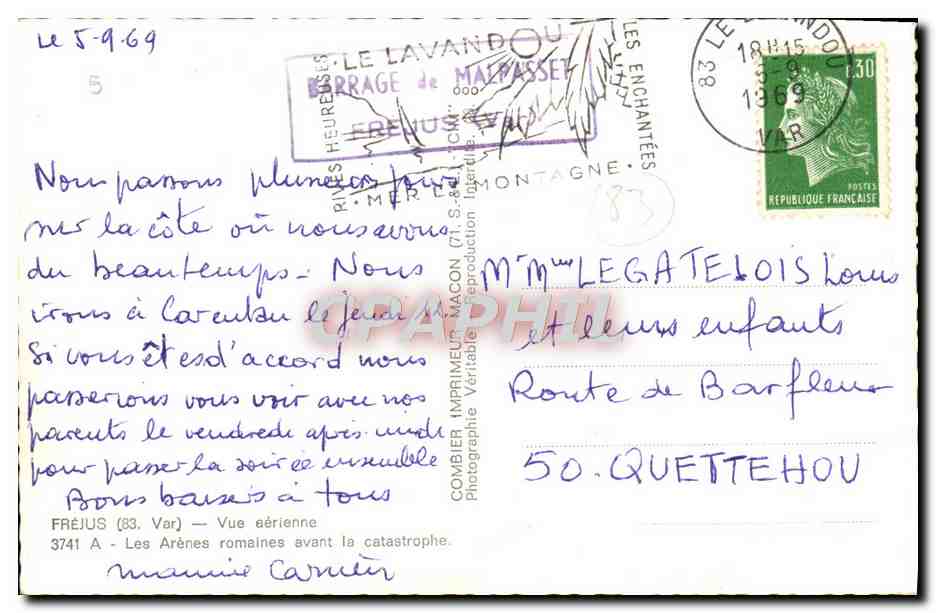 le 5-9-69
5
Nous passons plusieurs jours
sur la côte où nous avons
du beau temps - Nous
irons à Carentan le jeudi
Si vous êtes d'accord nous
passerions vous voir avec nos
parents le vendredi après-midi
pour passer la soirée ensemble
Bons baisers à tous
FRÉJUS (83. Var) — Vue aérienne
3741 A - Les Arènes romaines avant la catastrophe.
BARRAGE de MALPASSET
FREJUS (Var)
RIVES HEUREUSES
· LE LAVANDOU
LES ENCHANTÉES
· MER ET MONTAGNE ·
COMBIER IMPRIMEUR MACON (71. S.-&-L.) "CIM"
Photographie Véritable - Reproduction Interdite
83 LE LAVANDOU
18H15
5-9
1969
VAR
0.30
POSTES
REPUBLIQUE FRANÇAISE
83
Mr Mme LEGATELOIS Louis
et leurs enfants
Route de Barfleur
50. QUETTEHOU
CPAPHIL